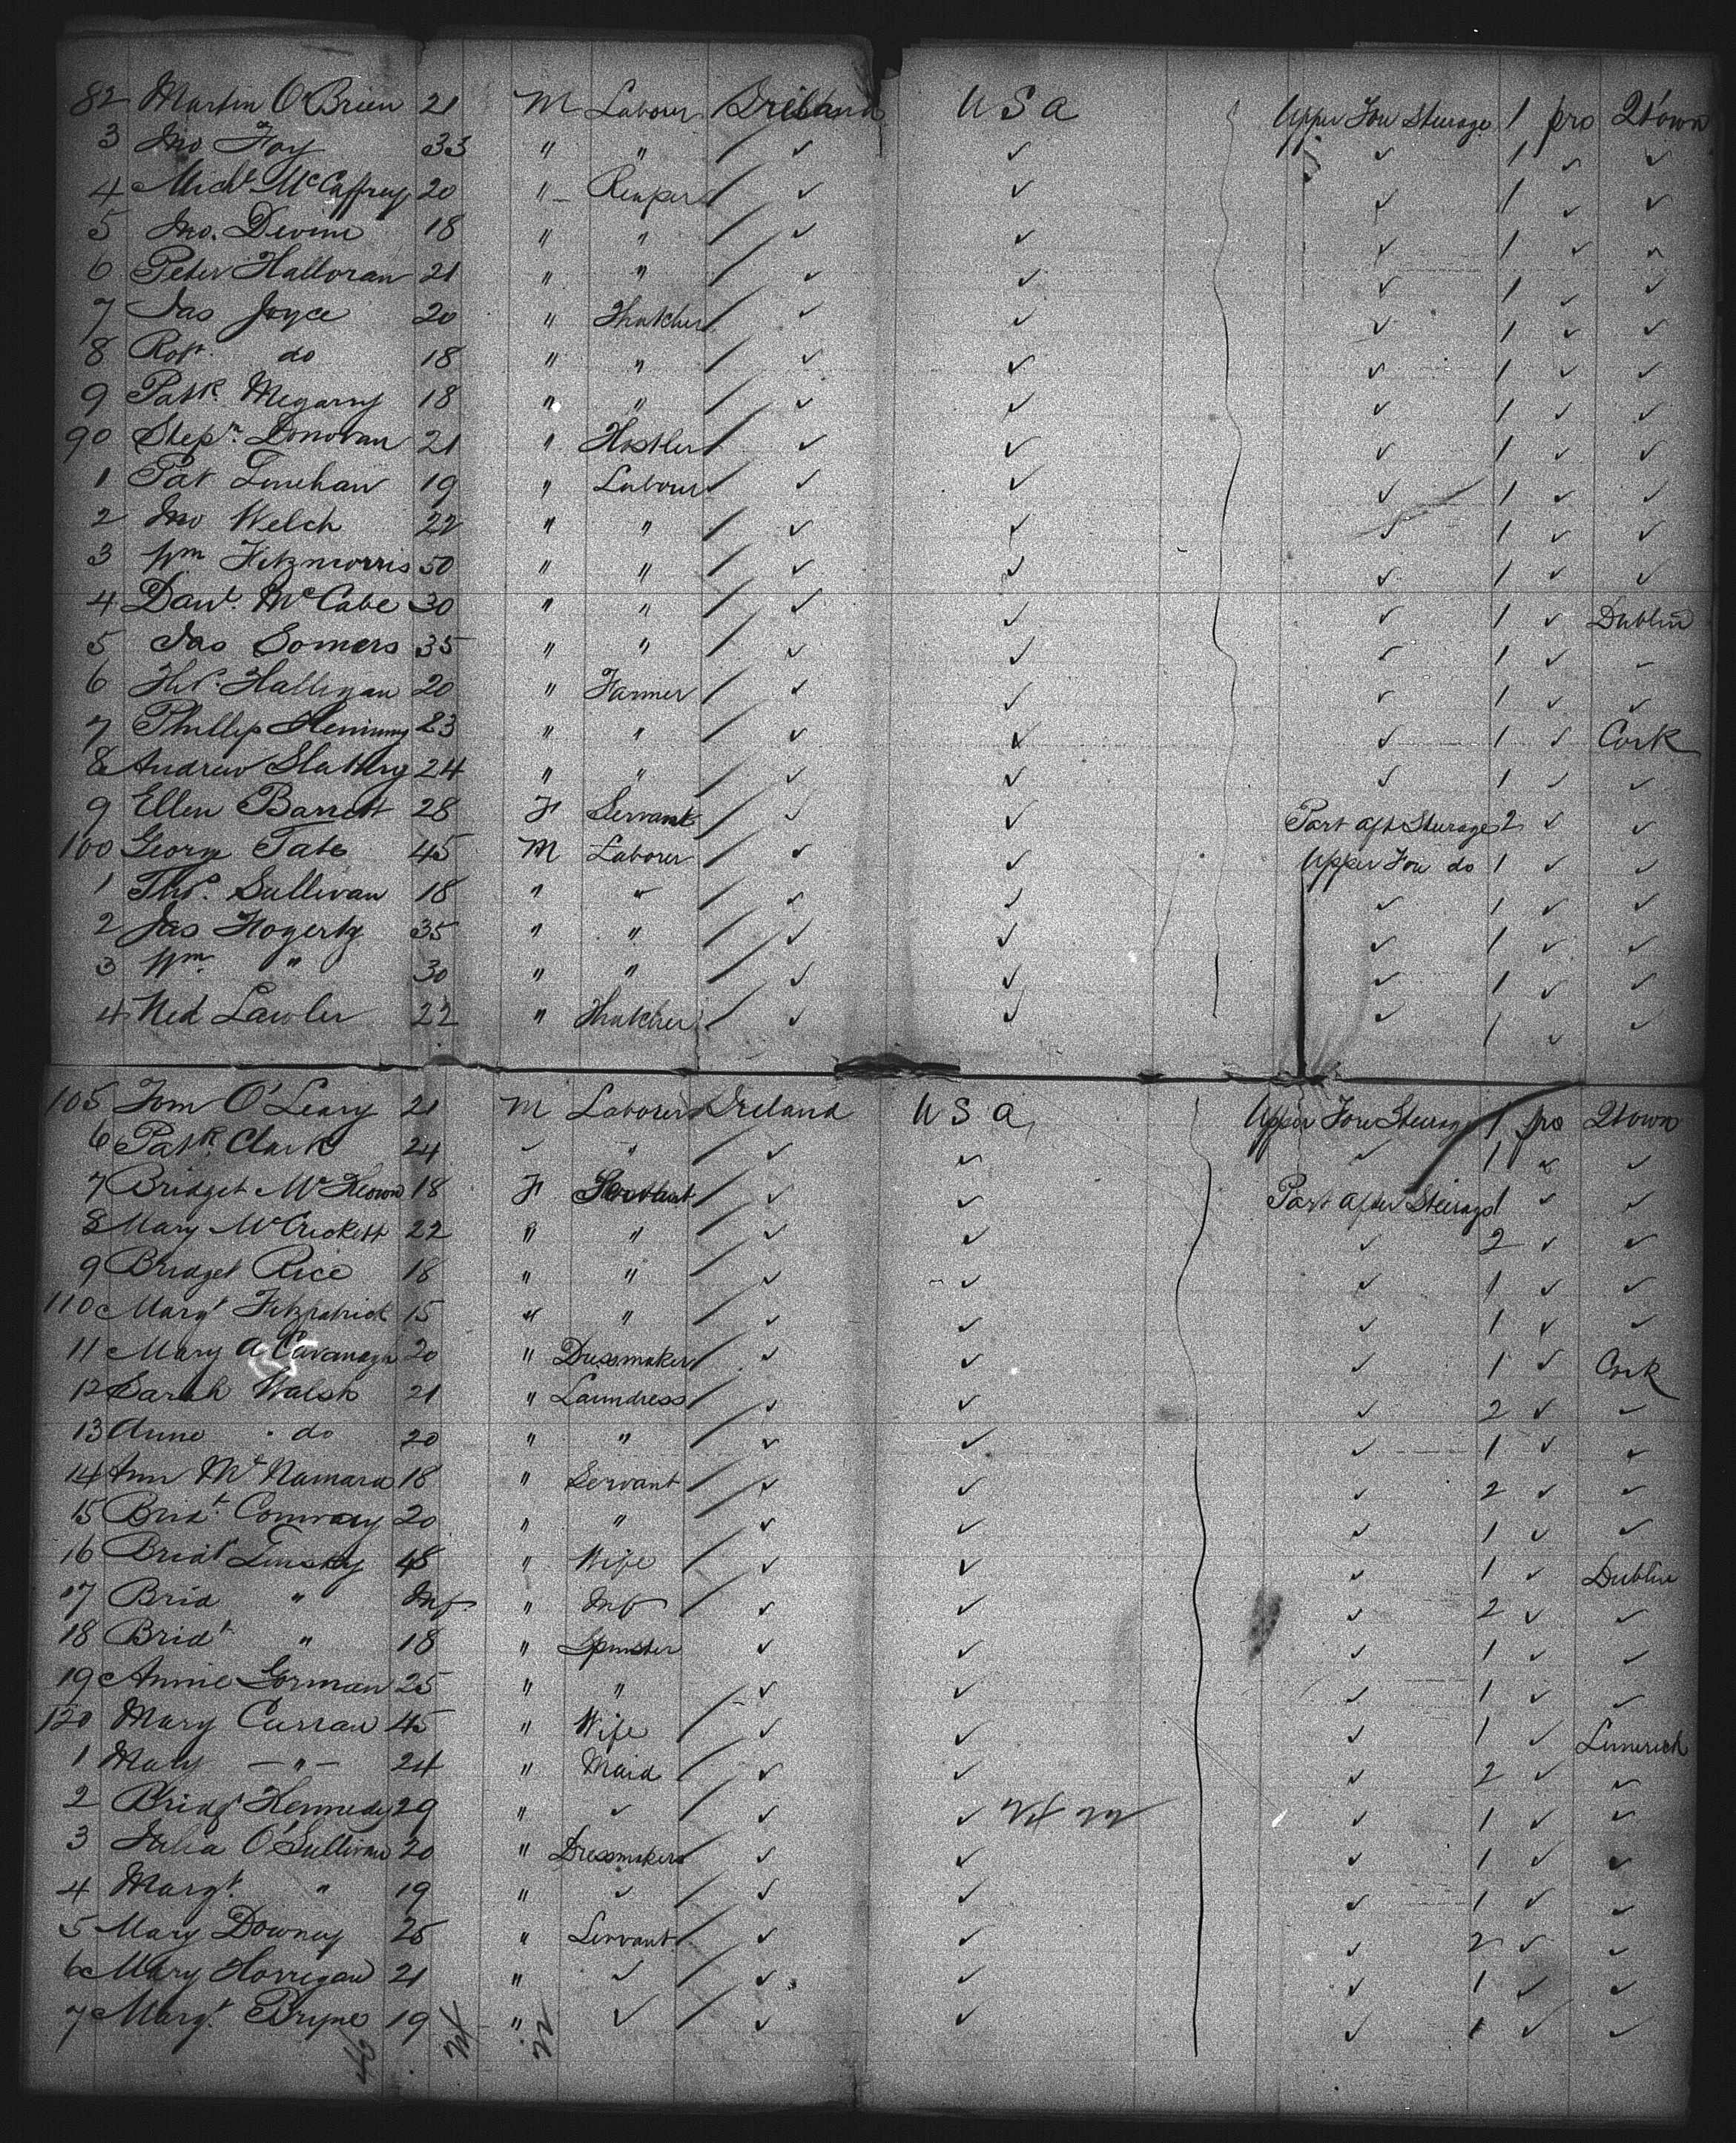 82 Martin O'Brien 21 M Laborer Ireland U S A Upper Fore Steerage 1 pro Qtown
3 Jno Foy 33 " " ✓ ✓ ✓ 1 ✓ ✓
4 Michl McCaffrey 20 " Reaper ✓ ✓ ✓ 1 ✓ ✓
5 Jno. Devine 18 " " ✓ ✓ ✓ 1 ✓ ✓
6 Peter Halloran 21 " " ✓ ✓ ✓ 1 ✓ ✓
7 Jas Joyce 20 " Thatcher ✓ ✓ ✓ 1 ✓ ✓
8 Robt. do 18 " " ✓ ✓ ✓ 1 ✓ ✓
9 Patk. Megarry 18 " " ✓ ✓ ✓ 1 ✓ ✓
90 Stepn. Donovan 21 " Hostler ✓ ✓ ✓ 1 ✓ ✓
1 Pat Linehan 19 " Laborer ✓ ✓ ✓ 1 ✓ ✓
2 Jno Welch 22 " " ✓ ✓ ✓ 1 ✓ ✓
3 Wm Fitzmorris 50 " " ✓ ✓ ✓ 1 ✓ ✓
4 Danl. McCabe 30 " " ✓ ✓ ✓ 1 ✓ Dublin
5 Jas Somers 35 " " ✓ ✓ ✓ 1 ✓ ✓
6 Thos. Halligan 20 " Farmer ✓ ✓ ✓ 1 ✓ ✓
7 Phillip Hemming 23 " " ✓ ✓ ✓ 1 ✓ Cork
8 Andrew Slattery 24 " " ✓ ✓ ✓ 1 ✓ ✓
9 Ellen Barrett 28 F Servant ✓ ✓ Part aft Steerage 2 ✓ ✓
100 George Tate 45 M Laborer ✓ ✓ Upper Fore do 1 ✓ ✓
1 Thos. Sullivan 18 " " ✓ ✓ ✓ 1 ✓ ✓
2 Jas Hogerty 35 " " ✓ ✓ ✓ 1 ✓ ✓
3 Wm. " 30 " " ✓ ✓ ✓ 1 ✓ ✓
4 Ned Lawler 22 " Thatcher ✓ ✓ ✓ 1 ✓ ✓
105 Tom O'Leary 21 M Laborer Ireland U S A Upper Fore Steerage 1 pro Qtown
6 Patk. Clark 24 ✓ " ✓ ✓ ✓ 1 ✓ ✓
7 Bridget McKeown 18 F Servant ✓ ✓ Part after Steerage 1 ✓ ✓
8 Mary McCrickett 22 " " ✓ ✓ ✓ 2 ✓ ✓
9 Bridget Rice 18 " " ✓ ✓ ✓ 1 ✓ ✓
110 Margt Fitzpatrick 15 " " ✓ ✓ ✓ 1 ✓ ✓
11 Mary A Cavanagh 20 " Dressmaker ✓ ✓ ✓ 1 ✓ Cork
12 Sarah Walsh 21 " Laundress ✓ ✓ ✓ 2 ✓ ✓
13 Anne do 20 " " ✓ ✓ ✓ 1 ✓ ✓
14 Ann McNamara 18 " Servant ✓ ✓ ✓ 2 ✓ ✓
15 Bridt. Conway 20 " " ✓ ✓ ✓ 1 ✓ ✓
16 Bridt Linskey 48 " Wife ✓ ✓ ✓ 1 ✓ Dublin
17 Brid " Inf " Inf ✓ ✓ ✓ 2 ✓ ✓
18 Bridt " 18 " Spinster ✓ ✓ ✓ 1 ✓ ✓
19 Annie Gorman 25 " " ✓ ✓ ✓ 1 ✓ ✓
120 Mary Curran 45 " Wife ✓ ✓ ✓ 1 ✓ Limerick
1 Mary — " — 24 " Maid ✓ ✓ ✓ 2 ✓ ✓
2 Bridgt Kennedy 29 " ✓ ✓ ✓ ✓ 1 ✓ ✓
3 Julia O'Sullivan 20 " Dressmaker ✓ ✓ ✓ 1 ✓ ✓
4 Margt. " 19 " ✓ ✓ ✓ ✓ 1 ✓ ✓
5 Mary Downey 25 " Servant ✓ ✓ ✓ 2 ✓ ✓
6 Mary Horrigan 21 " ✓ ✓ ✓ ✓ 1 ✓ ✓
7 Margt. Bryne 19 " ✓ ✓ ✓ ✓ 1 ✓ ✓